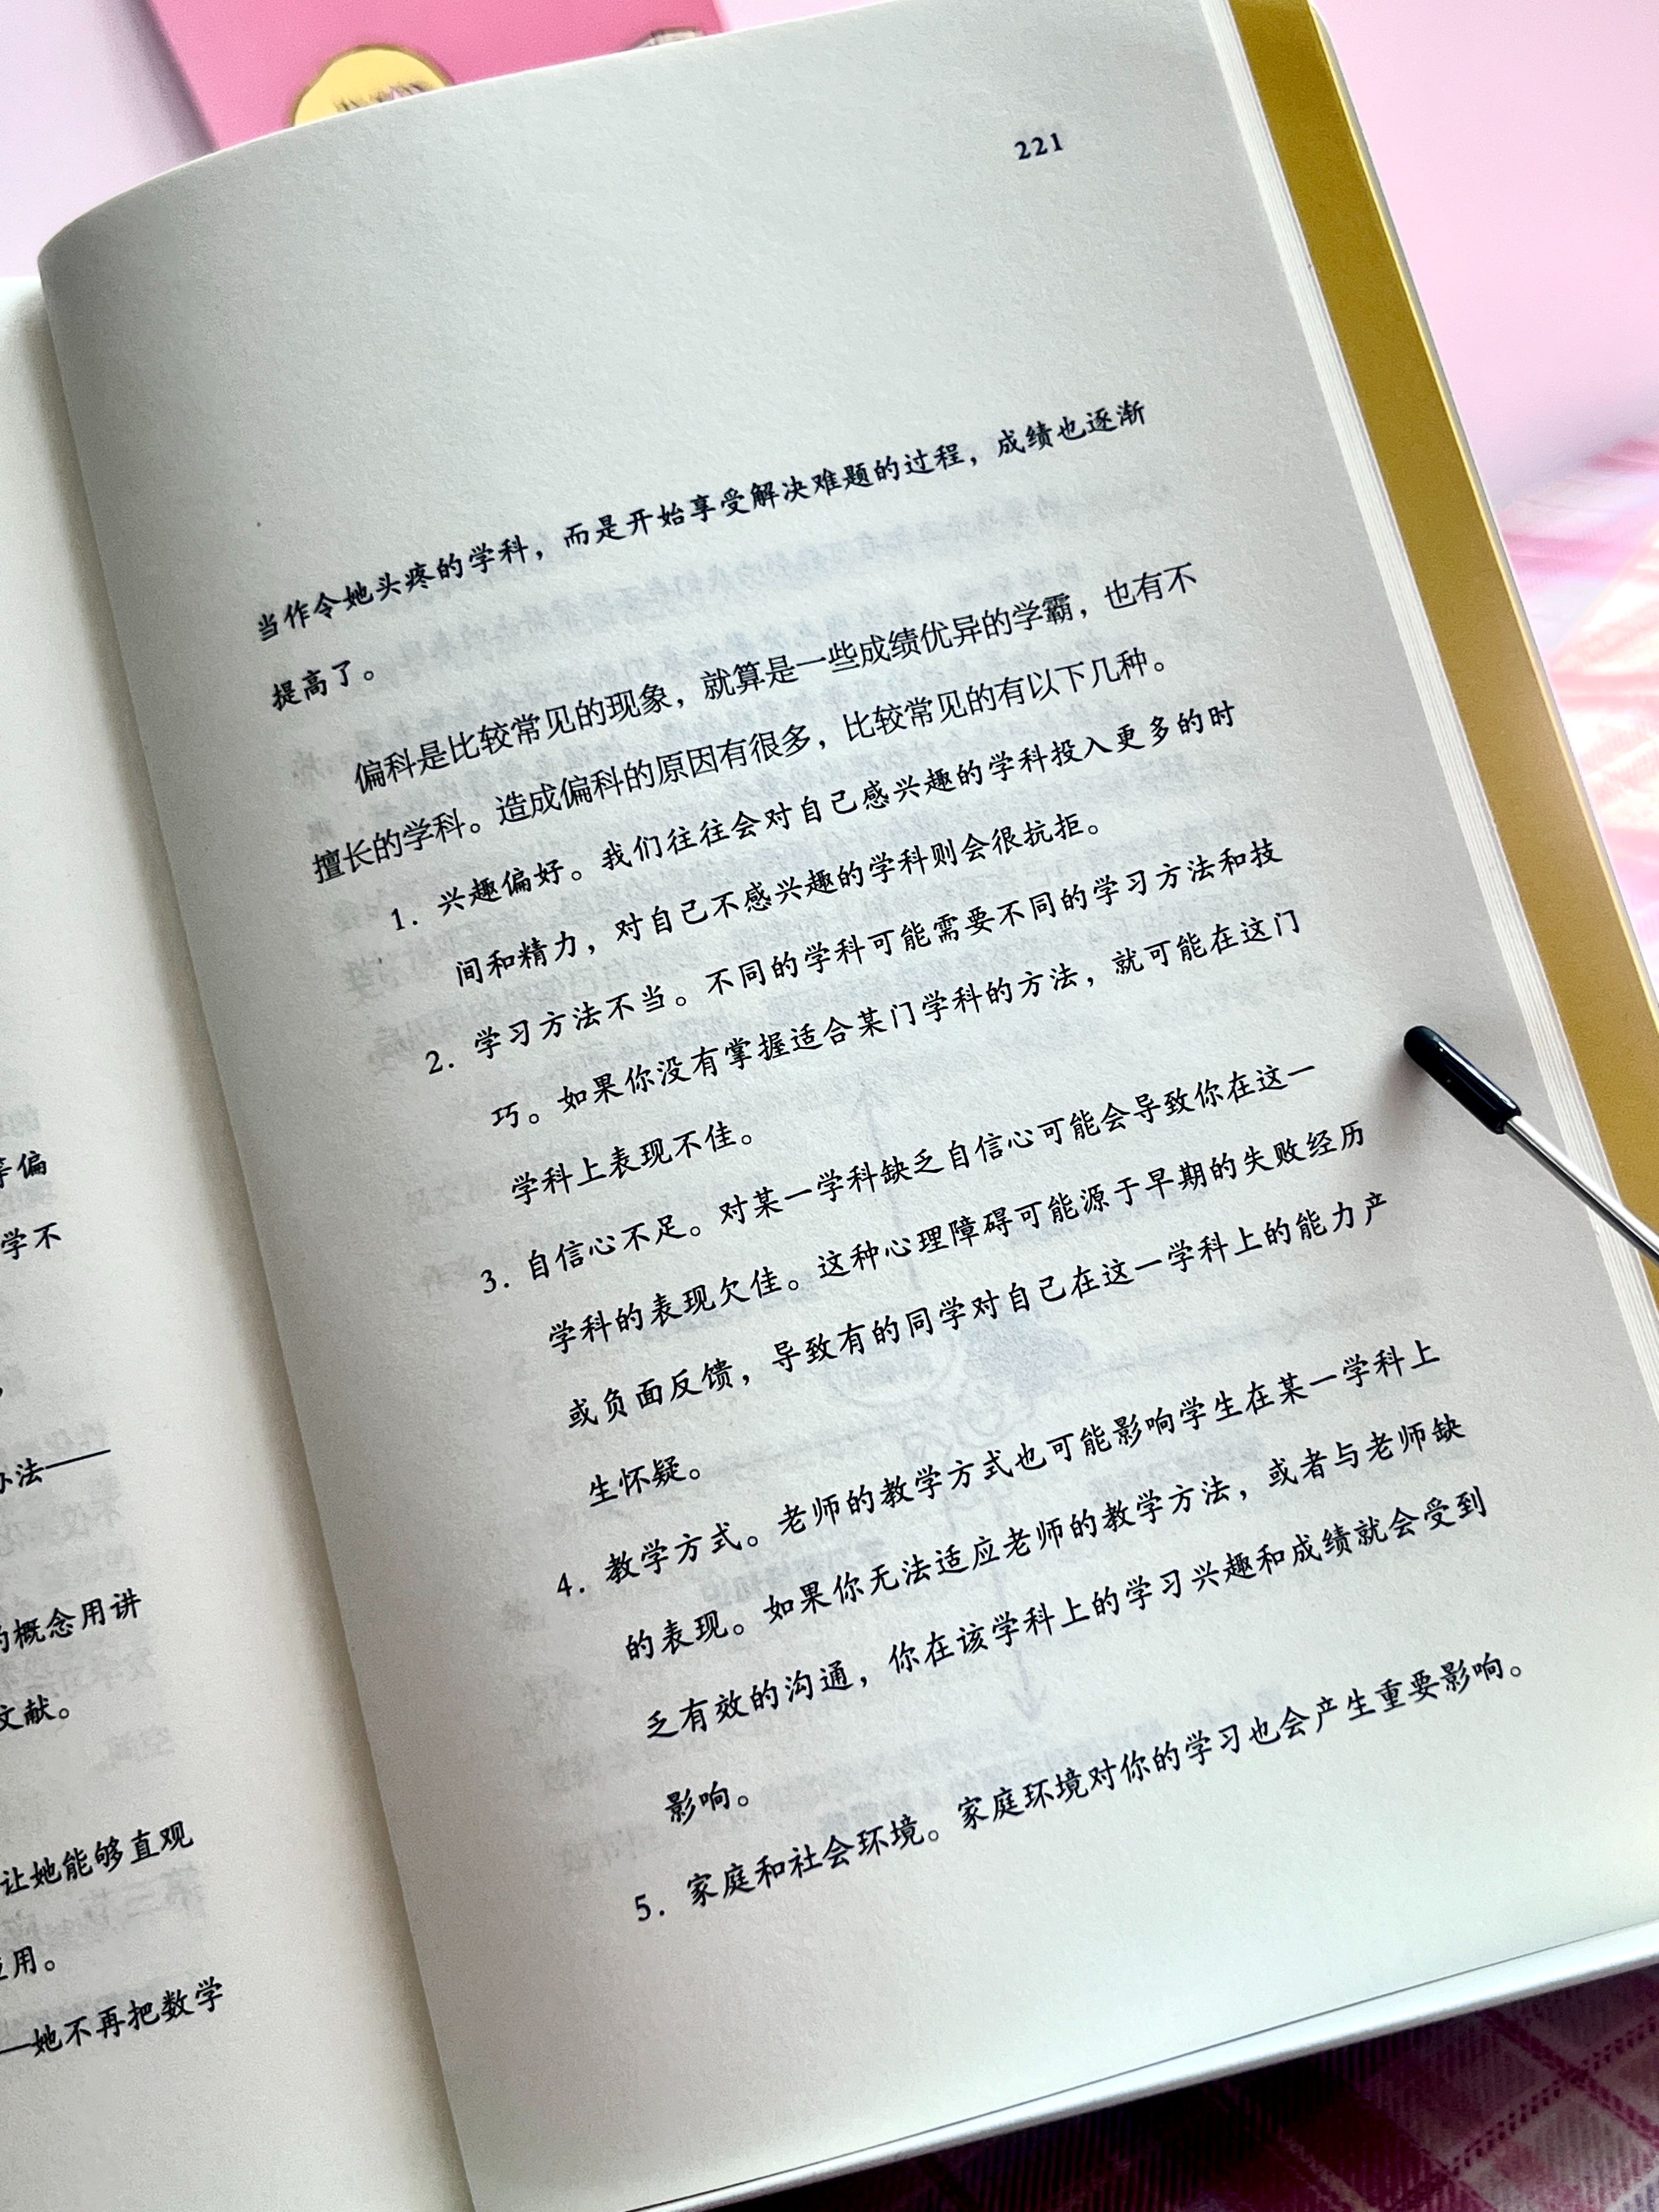 等偏
学不
办法——
的概念用讲
文献。
让她能够直观
应用。
——她不再把数学
221
当作令她头疼的学科，而是开始享受解决难题的过程，成绩也逐渐
提高了。
偏科是比较常见的现象，就算是一些成绩优异的学霸，也有不
擅长的学科。造成偏科的原因有很多，比较常见的有以下几种。
1. 兴趣偏好。我们往往会对自己感兴趣的学科投入更多的时
间和精力，对自己不感兴趣的学科则会很抗拒。
2. 学习方法不当。不同的学科可能需要不同的学习方法和技
巧。如果你没有掌握适合某门学科的方法，就可能在这门
学科上表现不佳。
3. 自信心不足。对某一学科缺乏自信心可能会导致你在这一
学科的表现欠佳。这种心理障碍可能源于早期的失败经历
或负面反馈，导致有的同学对自己在这一学科上的能力产
生怀疑。
4. 教学方式。老师的教学方式也可能影响学生在某一学科上
的表现。如果你无法适应老师的教学方法，或者与老师缺
乏有效的沟通，你在该学科上的学习兴趣和成绩就会受到
影响。
5. 家庭和社会环境。家庭环境对你的学习也会产生重要影响。